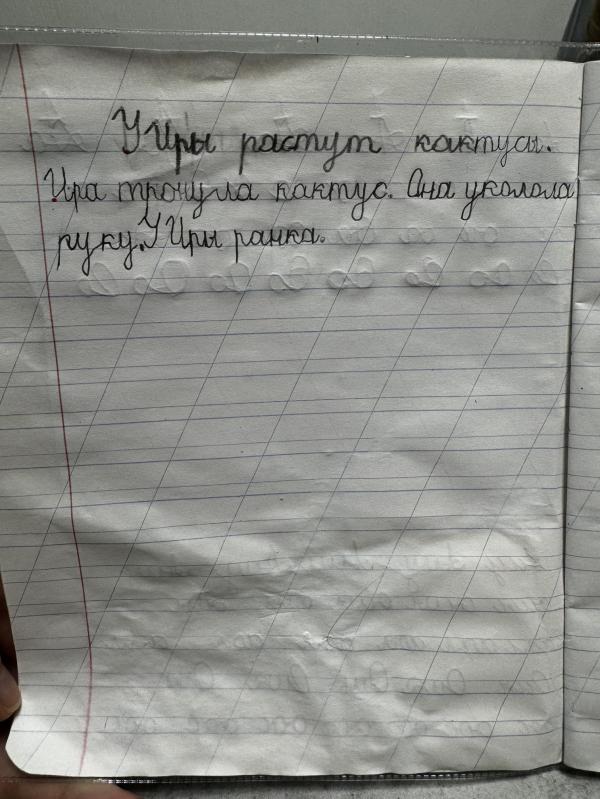 У Иры растут кактусы.
Ира тронула кактус. Она уколола
руку. У Иры ранка.